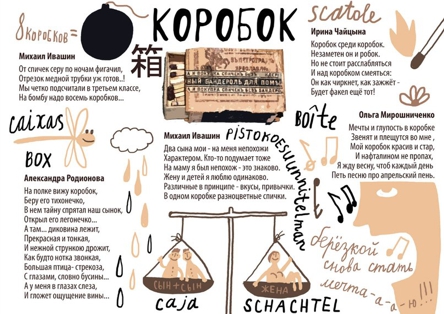 8 коробков =
КОРОБОК
scatole
箱
Михаил Ивашин
От спичек серу по ночам фигачил,
Отрезок медной трубки уж готов..!
Мы четко подсчитали в третьем классе,
На бомбу надо восемь коробков...
Ирина Чайцына
Коробок среди коробок.
Незаметен он и робок.
Но не стоит расслабляться
И над коробком смеяться:
Он как чиркнет, как зажжёт -
Будет факел ещё тот!
caixas
BOX
Александра Родионова
На полке вижу коробок,
Беру его тихонечко,
В нем тайну спрятал наш сынок,
Открыл его легонечко...
А там... диковина лежит,
Прекрасная и тонкая,
И нежной стрункою дрожит,
Как будто нотка звонкая,
Большая птица- стрекоза,
С глазами, словно бусины...
А у меня в глазах слеза,
И гложет ощущение вины...
Михаил Ивашин
Два сына мои - на меня непохожи
Характером. Кто-то подумает тоже
На маму я был непохож - это знаково.
Жену и детей я люблю одинаково.
Различные в принципе - вкусы, привычки.
В одном коробке разноцветные спички.
boîte
Ольга Мирошниченко
Мечты и глупость в коробке
Звенят и плещутся во мне ,
Мой коробок красив и стар,
И нафталином не пропах,
Я жду весну, чтоб каждый день
Петь песню про апрельский пень.
СЫН + СЫН
ЖЕНА
caja
SCHACHTEL
берёзкой
снова стать
мечта-а-а-ю!!!